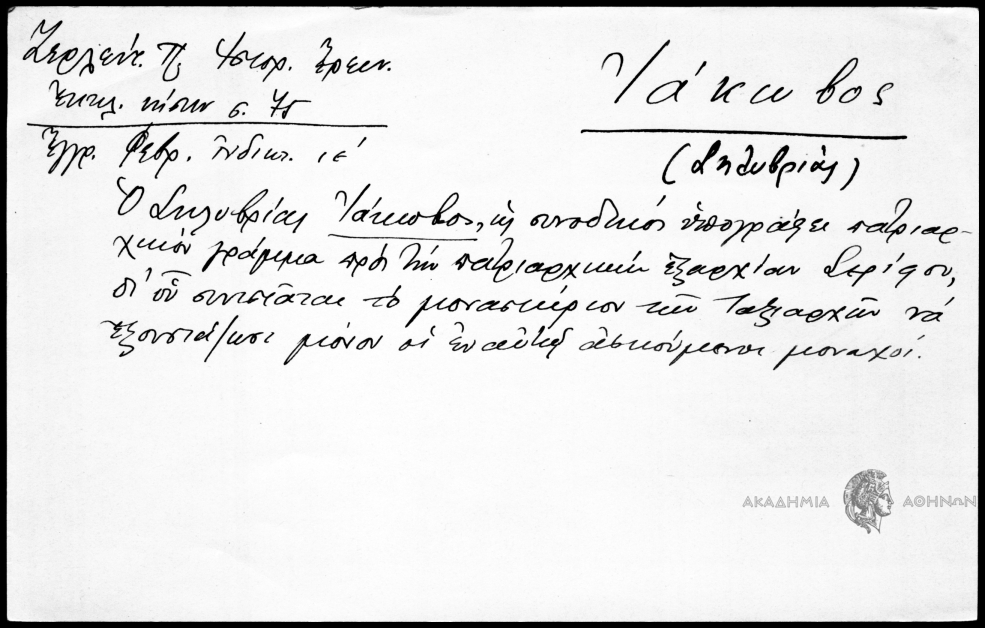 Ζερλέντ. Π. Ἱστορ. Ἔρευν.
Ἐκκλ. νήσων σ. 75
Ἔγγρ. Φεβρ. ἰνδικτ. ιε΄
Ἰάκωβος
(Σηλυβρίας)
Ὁ Σηλυβρίας Ἰάκωβος, ὡς συνοδικός ὑπογράφει πατριαρ-
χικόν γράμμα πρός τήν πατριαρχικήν ἐξαρχίαν Σερίφου,
δι' οὗ συνιστᾶται τό μοναστήριον τῶν Ταξιαρχῶν νά
ἐξουσιάζωσι μόνον οἱ ἐν αὐτῇ ἀσκούμενοι μοναχοί.
ΑΚΑΔΗΜΙΑ ΑΘΗΝΩΝ